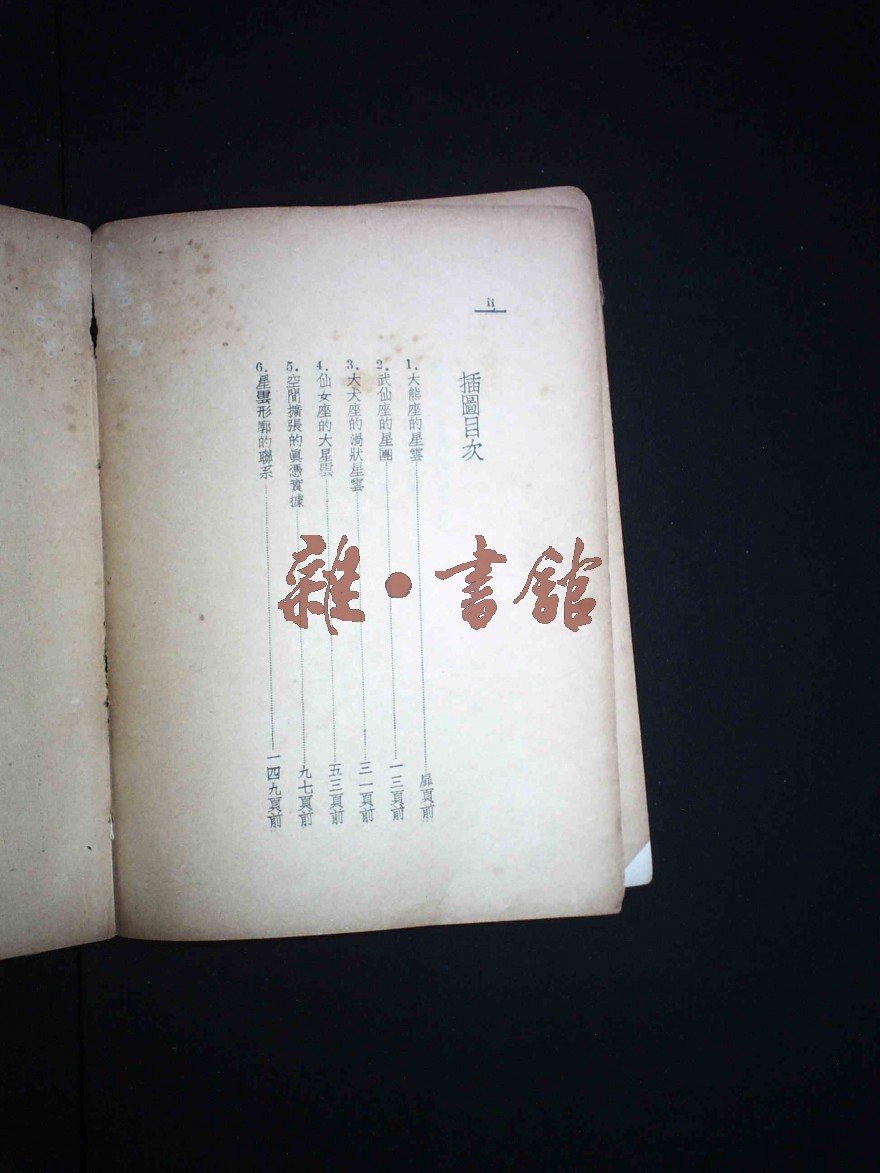 ii
插圖目次
1. 大熊座的星雲 扉頁前
2. 武仙座的星團 一三頁前
3. 大犬座的渦狀星雲 三一頁前
4. 仙女座的大星雲 五三頁前
5. 空間擴張的眞憑實據 九七頁前
6. 星雲形廓的聯系 一四九頁前
雜·書館